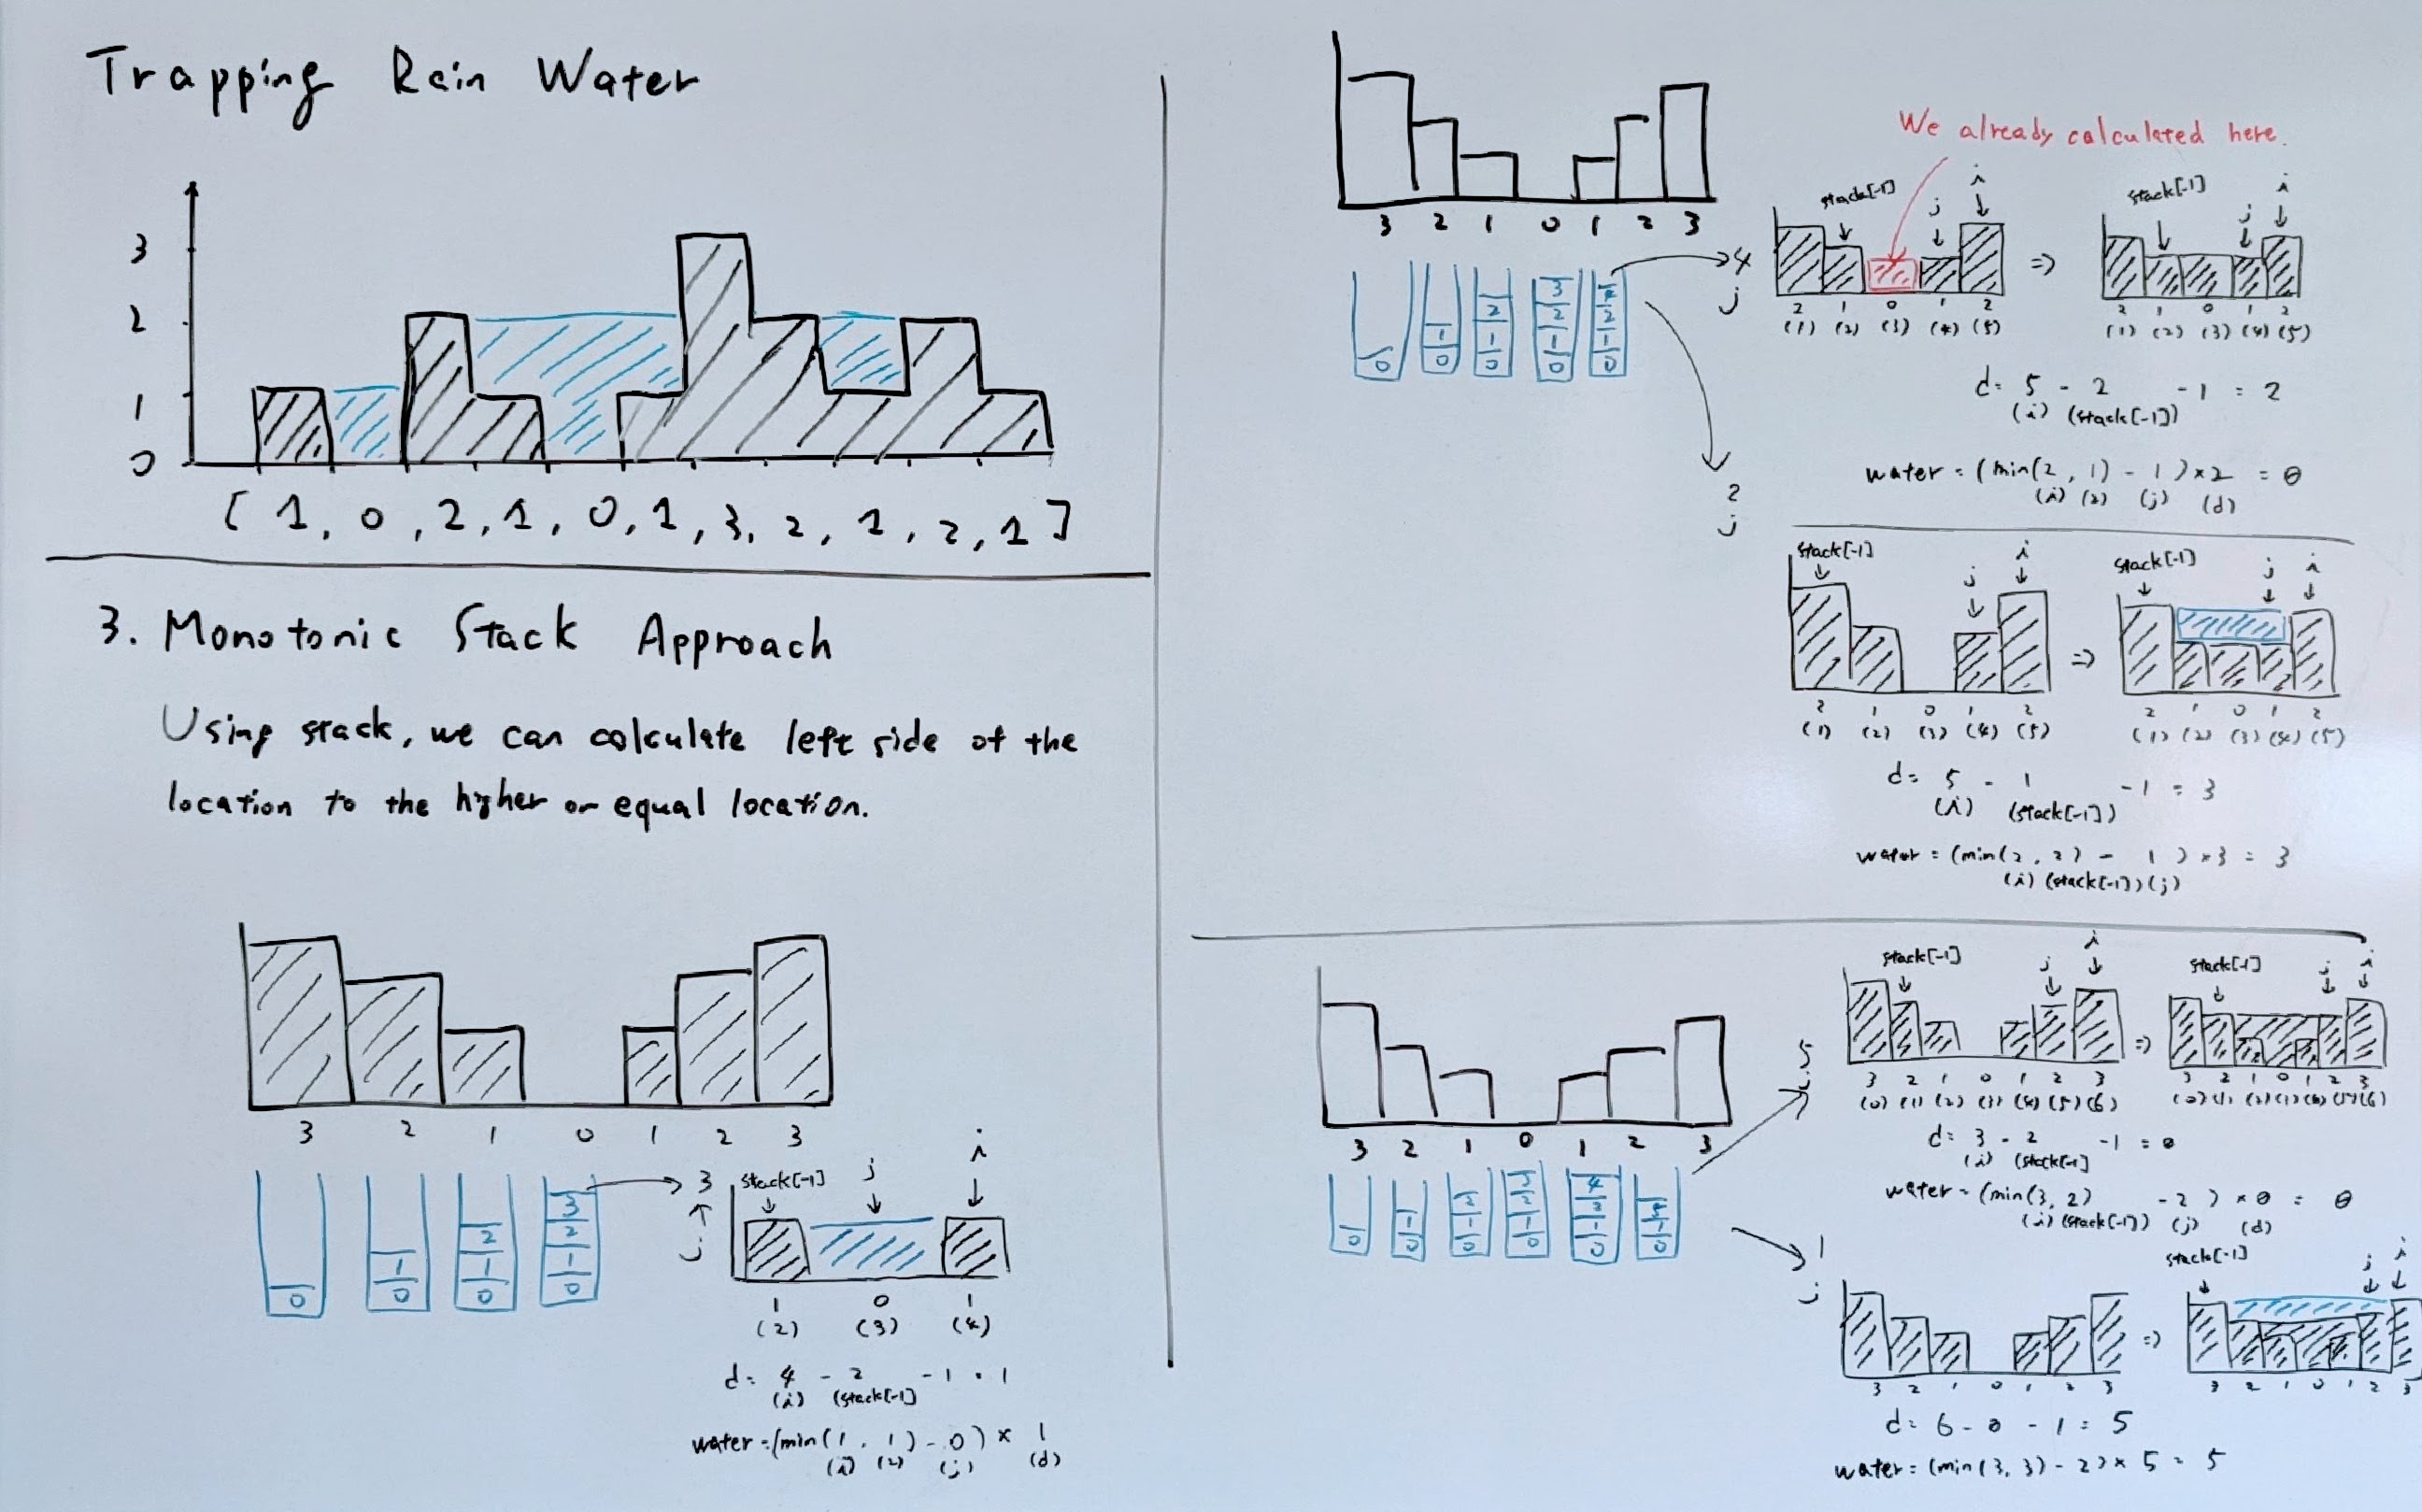 Trapping Rain Water
3
2
1
0
[ 1, 0, 2, 1, 0, 1, 3, 2, 1, 2, 1 ]
3. Monotonic Stack Approach
Using stack, we can calculate left side of the
location to the higher or equal location.
3 2 1 0 1 2 3
0
1
0
2
1
0
3
2
1
0
3
j
stack[-1] j i
1 0 1
(2) (3) (4)
d = 4 - 2 - 1 = 1
(i) (stack[-1]
water = (min(1, 1) - 0) × 1
(i) (2) (j) (d)
3 2 1 0 1 2 3
0
1
0
2
1
0
3
2
1
0
4
2
1
0
4
j
We already calculated here.
stack[-1] j i
2 1 0 1 2
(1) (2) (3) (4) (5)
=>
stack[-1] j i
2 1 0 1 2
(1) (2) (3) (4) (5)
d = 5 - 2 - 1 = 2
(i) (stack[-1])
water = (min(2, 1) - 1) × 2 = 0
(i) (2) (j) (d)
2
j
stack[-1] j i
2 1 0 1 2
(1) (2) (3) (4) (5)
=>
stack[-1] j i
2 1 0 1 2
(1) (2) (3) (4) (5)
d = 5 - 1 - 1 = 3
(i) (stack[-1])
water = (min(2, 2) - 1) × 3 = 3
(i) (stack[-1]) (j)
3 2 1 0 1 2 3
0
1
0
2
1
0
3
2
1
0
4
1
0
1
0
5
j
stack[-1] j i
3 2 1 0 1 2 3
(0) (1) (2) (3) (4) (5) (6)
=>
stack[-1] j i
3 2 1 0 1 2 3
d = 3 - 2 - 1 = 0
(i) (stack[-1]
water = (min(3, 2) - 2) × 0 = 0
(i) (stack[-1]) (j) (d)
1
j
3 2 1 0 1 2 3
=>
stack[-1] j i
3 2 1 0 1 2 3
d = 6 - 0 - 1 = 5
water = (min(3, 3) - 2) × 5 = 5